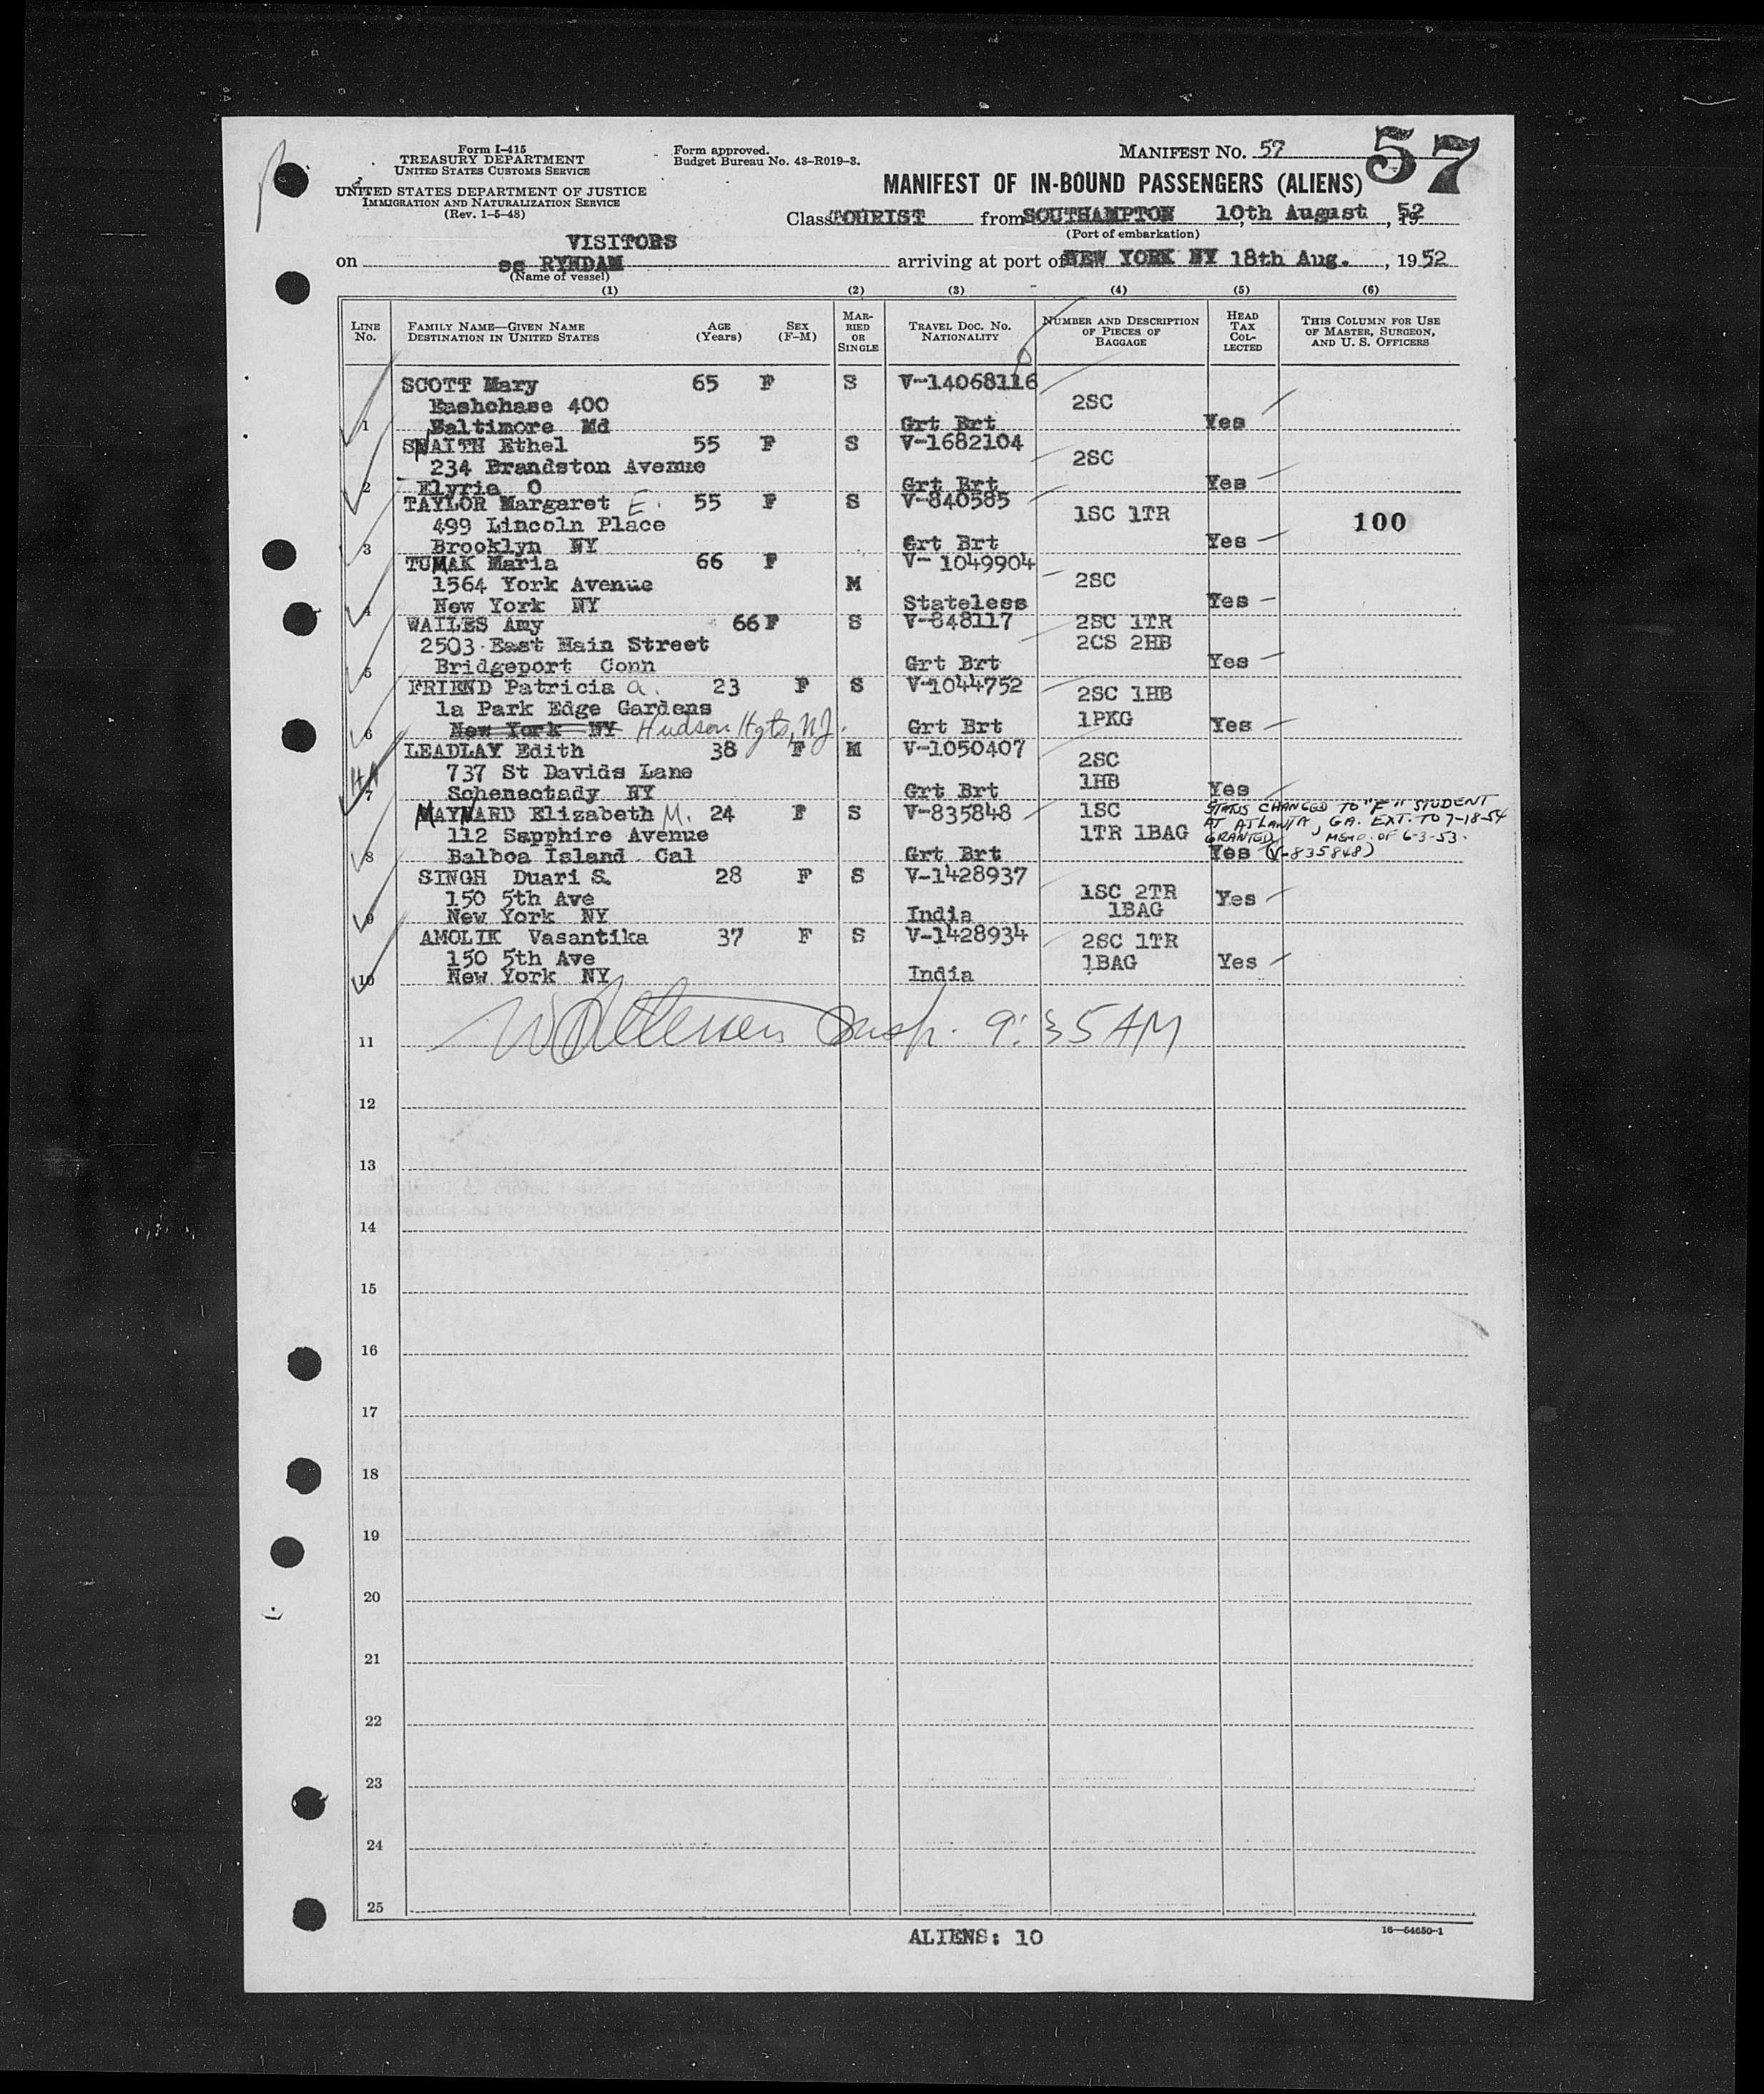 Form I-415
TREASURY DEPARTMENT
UNITED STATES CUSTOMS SERVICE
UNITED STATES DEPARTMENT OF JUSTICE
IMMIGRATION AND NATURALIZATION SERVICE
(Rev. 1-5-48)
Form approved.
Budget Bureau No. 43-R019-3.
MANIFEST No. 57
57
MANIFEST OF IN-BOUND PASSENGERS (ALIENS)
Class TOURIST from SOUTHAMPTON 10th August, 1952
(Port of embarkation)
VISITORS
on ss RYNDAM arriving at port of NEW YORK NY 18th Aug., 1952
(Name of vessel)
(1) (2) (3) (4) (5) (6)
LINE No. FAMILY NAME—GIVEN NAME DESTINATION IN UNITED STATES AGE (Years) SEX (F-M) MARRIED OR SINGLE TRAVEL DOC. No. NATIONALITY NUMBER AND DESCRIPTION OF PIECES OF BAGGAGE HEAD TAX COLLECTED THIS COLUMN FOR USE OF MASTER, SURGEON, AND U. S. OFFICERS
SCOTT Mary 65 F S V-14068116
400 2SC
1 Baltimore Md Grt Brt Yes
SNAITH Ethel 55 F S V-1682104
234 Brandston Avenue 2SC
2 Elyria O Grt Brt Yes
TAYLOR Margaret E. 55 F S V-840585
499 Lincoln Place 1SC 1TR 100
3 Brooklyn NY Grt Brt Yes
TUMAK Maria 66 F V-1049904
1564 York Avenue M 2SC
4 New York NY Stateless Yes
WAILES Amy 66 F S V-848117 2SC 1TR
2503 East Main Street 2CS 2HB
5 Bridgeport Conn Grt Brt Yes
FRIEND Patricia a. 23 F S V-1044752 2SC 1HB
1a Park Edge Gardens
6 New York NY Hudson Hgts, NJ. Grt Brt 1PKG Yes
LEADLAY Edith 38 F M V-1050407 2SC
737 St Davids Lane 1HB
7 Schenectady NY Grt Brt Yes
MAYNARD Elizabeth M. 24 F S V-835848 1SC STATUS CHANGED TO "E" STUDENT
112 Sapphire Avenue 1TR 1BAG AT ATLANTA GA. EXT. TO 7-18-54
GRANTED MEMO. OF 6-3-53.
8 Balboa Island Cal Grt Brt Yes (V-835848)
SINGH Duari S. 28 F S V-1428937
150 5th Ave 1SC 2TR Yes
9 New York NY India 1BAG
AMOLIK Vasantika 37 F S V-1428934 2SC 1TR
150 5th Ave 1BAG Yes
10 New York NY India
11 Insp. 9:35 AM
12
13
14
15
16
17
18
19
20
21
22
23
24
25
ALIENS: 10
16—54650-1